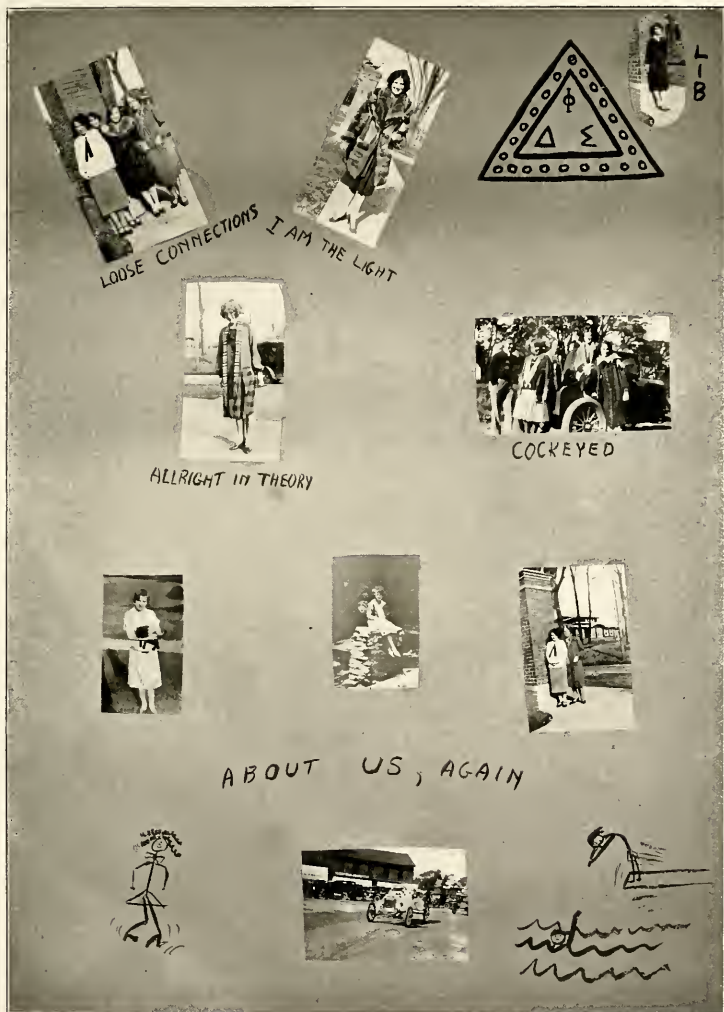 LIB
Φ
Δ Σ
LOOSE CONNECTIONS
I AM THE LIGHT
ALLRIGHT IN THEORY
COCKEYED
ABOUT US, AGAIN